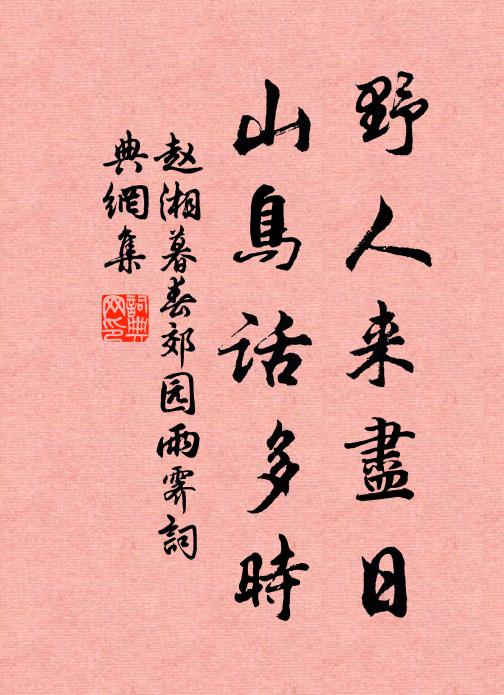 野人来盡日
山鳥話多時
赵湘暮春郊园雨霽詞
典網集
詞典
网印